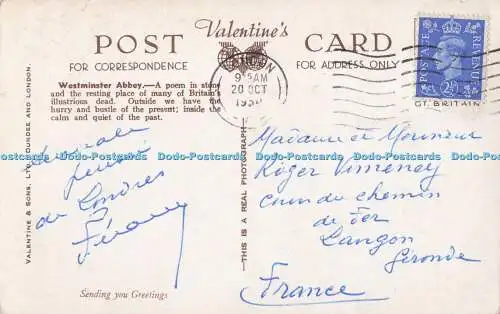 POST
Valentine's
CARD
FOR CORRESPONDENCE
FOR ADDRESS ONLY
Westminster Abbey.—A poem in stone
and the resting place of many of Britain's
illustrious dead. Outside we have the
hurry and bustle of the present; inside the
calm and quiet of the past.
LONDON
9 15 AM
20 OCT
1950
POSTAGE
REVENUE
2½D
GT. BRITAIN
VALENTINE & SONS, LTD., DUNDEE AND LONDON.
THIS IS A REAL PHOTOGRAPH
pensée
de Londres
Sending you Greetings
Madame et Monsieur
Roger Vimeney
cours du chemin
de Fer
Langon
Gironde
France
Dodo-Postcards Dodo-Postcards Dodo-Postcards Dodo-Postcards Dodo-Postcards